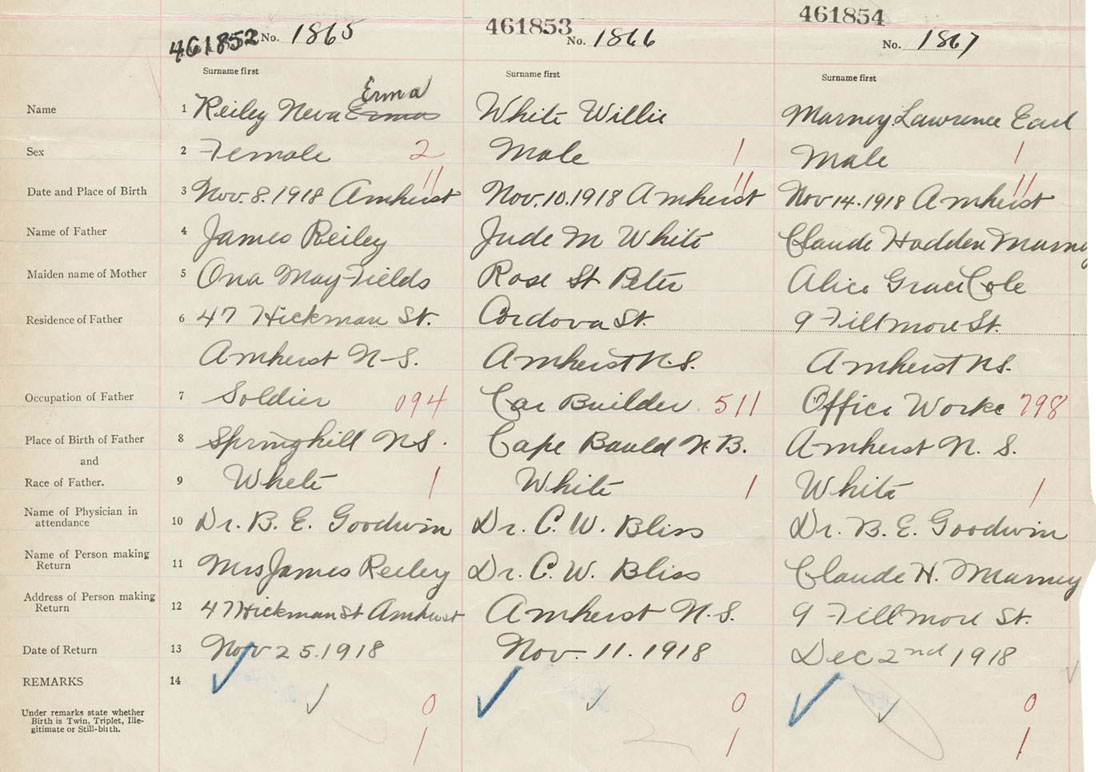 461852 No. 1865 461853 No. 1866 461854 No. 1867
Surname first Surname first Surname first
Erma
Name 1 Reiley Neva Erma White Willie Marney Lawrence Earl
Sex 2 Female 2 Male 1 Male 1
11 11 11
Date and Place of Birth 3 Nov. 8. 1918 Amherst Nov. 10. 1918 Amherst Nov 14. 1918 Amherst
Name of Father 4 James Reiley Jude M White Claude Hadden Marney
Maiden name of Mother 5 Ona May Fields Rose St Peter Alice Grace Cole
Residence of Father 6 47 Hickman St. Cordova St. 9 Fillmore St.
Amherst N-S. Amherst N.S. Amherst NS.
Occupation of Father 7 Soldier 094 Car Builder 511 Office Worke 798
Place of Birth of Father 8 Springhill NS. Cape Bauld N.B. Amherst N. S.
and
Race of Father. 9 White 1 White 1 White 1
Name of Physician in
attendance 10 Dr. B. E. Goodwin Dr. C. W. Bliss Dr. B. E. Goodwin
Name of Person making
Return 11 Mrs James Reiley Dr. C. W. Bliss Claude H. Marney
Address of Person making
Return 12 47 Hickman St Amherst Amherst N.S. 9 Fillmore St.
Date of Return 13 Nov 25. 1918 Nov. 11. 1918 Dec 2nd 1918
REMARKS 14
Under remarks state whether 0 0 0
Birth is Twin, Triplet, Ille-
gitimate or Still-birth. 1 1 1